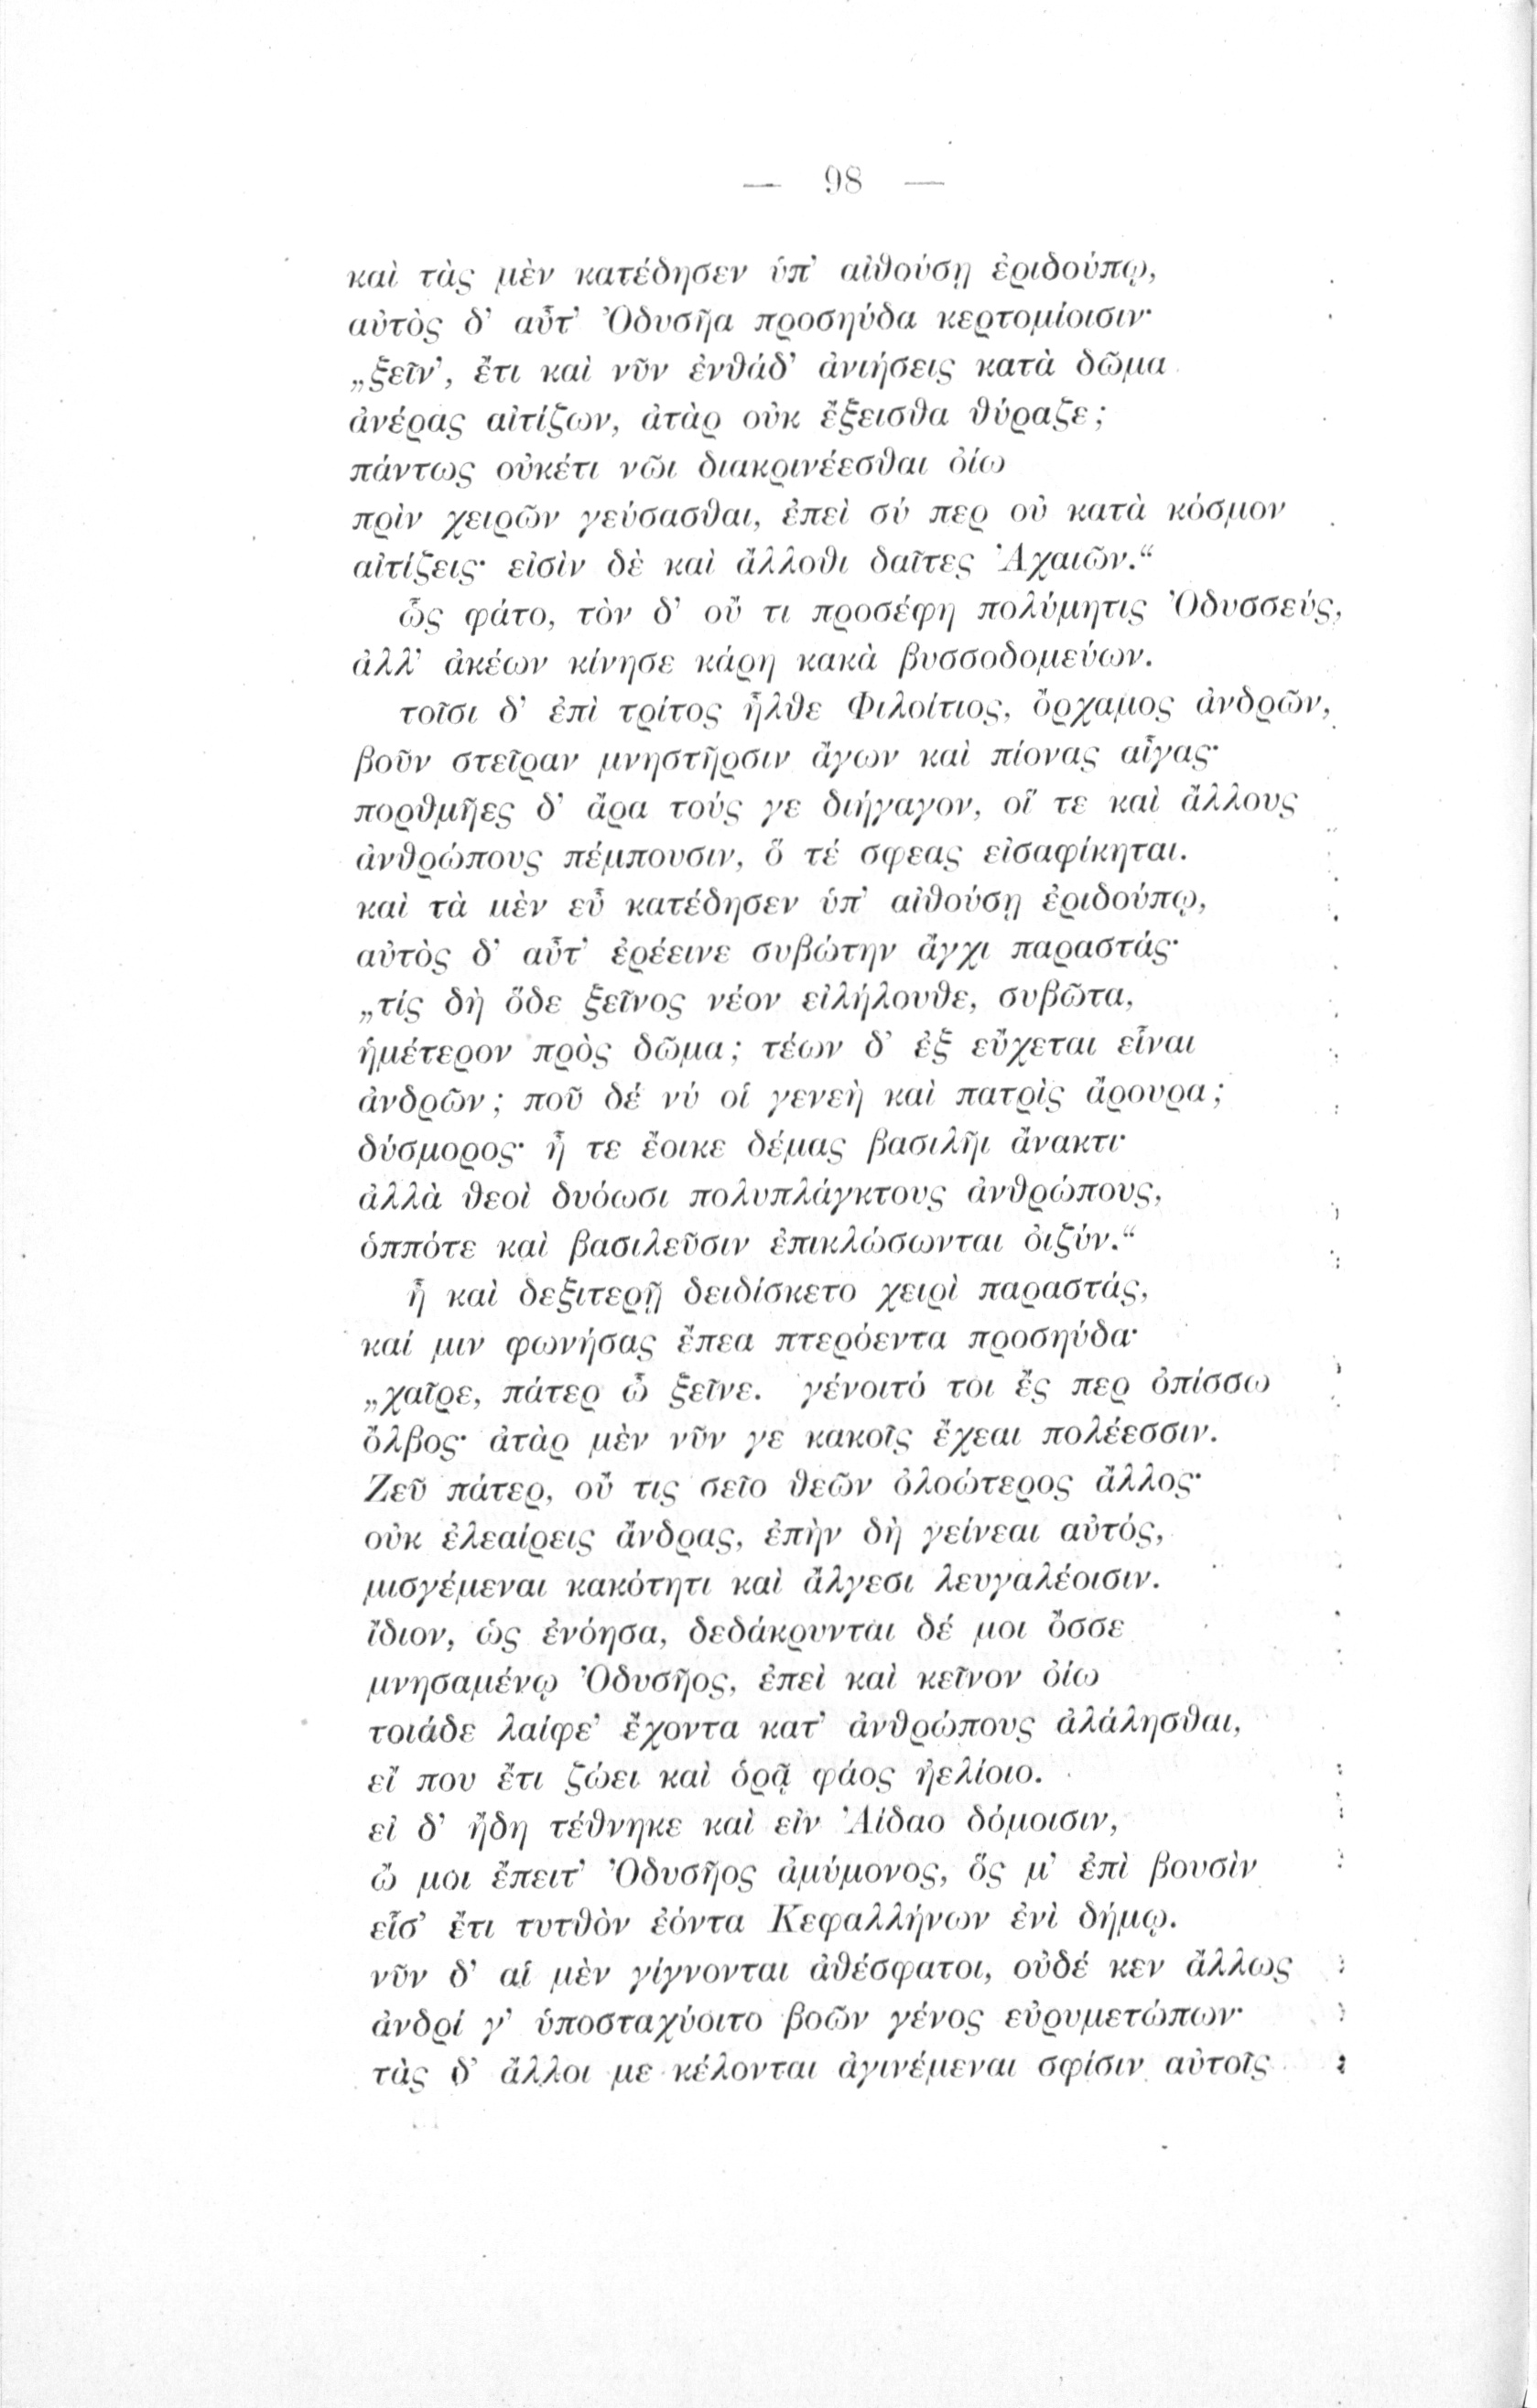 — 98 —
καὶ τὰς μὲν κατέδησεν ὑπ᾽ αἰθούσῃ ἐριδούπῳ,
αὐτὸς δ᾽ αὖτ᾽ Ὀδυσῆα προσηύδα κερτομίοισιν·
„ξεῖν᾽, ἔτι καὶ νῦν ἐνθάδ᾽ ἀνιήσεις κατὰ δῶμα
ἀνέρας αἰτίζων, ἀτὰρ οὐκ ἔξεισθα θύραζε;
πάντως οὐκέτι νῶι διακρινέεσθαι ὀίω
πρὶν χειρῶν γεύσασθαι, ἐπεὶ σύ περ οὐ κατὰ κόσμον
αἰτίζεις· εἰσὶν δὲ καὶ ἄλλοθι δαῖτες Ἀχαιῶν.“
ὣς φάτο, τὸν δ᾽ οὔ τι προσέφη πολύμητις Ὀδυσσεύς,
ἀλλ᾽ ἀκέων κίνησε κάρη κακὰ βυσσοδομεύων.
τοῖσι δ᾽ ἐπὶ τρίτος ἦλθε Φιλοίτιος, ὄρχαμος ἀνδρῶν,
βοῦν στεῖραν μνηστῆρσιν ἄγων καὶ πίονας αἶγας·
πορθμῆες δ᾽ ἄρα τούς γε διήγαγον, οἵ τε καὶ ἄλλους
ἀνθρώπους πέμπουσιν, ὅ τέ σφεας εἰσαφίκηται.
καὶ τὰ μὲν εὖ κατέδησεν ὑπ᾽ αἰθούσῃ ἐριδούπῳ,
αὐτὸς δ᾽ αὖτ᾽ ἐρέεινε συβώτην ἄγχι παραστάς·
„τίς δὴ ὅδε ξεῖνος νέον εἰλήλουθε, συβῶτα,
ἡμέτερον πρὸς δῶμα; τέων δ᾽ ἐξ εὔχεται εἶναι
ἀνδρῶν; ποῦ δέ νύ οἱ γενεὴ καὶ πατρὶς ἄρουρα;
δύσμορος· ἦ τε ἔοικε δέμας βασιλῆι ἄνακτι·
ἀλλὰ θεοὶ δυόωσι πολυπλάγκτους ἀνθρώπους,
ὁππότε καὶ βασιλεῦσιν ἐπικλώσωνται ὀιζύν.“
ἦ καὶ δεξιτερῇ δειδίσκετο χειρὶ παραστάς,
καί μιν φωνήσας ἔπεα πτερόεντα προσηύδα·
„χαῖρε, πάτερ ὦ ξεῖνε. γένοιτό τοι ἔς περ ὀπίσσω
ὄλβος· ἀτὰρ μὲν νῦν γε κακοῖς ἔχεαι πολέεσσιν.
Ζεῦ πάτερ, οὔ τις σεῖο θεῶν ὀλοώτερος ἄλλος·
οὐκ ἐλεαίρεις ἄνδρας, ἐπὴν δὴ γείνεαι αὐτός,
μισγέμεναι κακότητι καὶ ἄλγεσι λευγαλέοισιν.
ἴδιον, ὡς ἐνόησα, δεδάκρυνται δέ μοι ὄσσε
μνησαμένῳ Ὀδυσῆος, ἐπεὶ καὶ κεῖνον ὀίω
τοιάδε λαίφε᾽ ἔχοντα κατ᾽ ἀνθρώπους ἀλάλησθαι,
εἴ που ἔτι ζώει καὶ ὁρᾷ φάος ἠελίοιο.
εἰ δ᾽ ἤδη τέθνηκε καὶ εἰν Ἀίδαο δόμοισιν,
ὤ μοι ἔπειτ᾽ Ὀδυσῆος ἀμύμονος, ὅς μ᾽ ἐπὶ βουσὶν
εἷσ᾽ ἔτι τυτθὸν ἐόντα Κεφαλλήνων ἐνὶ δήμῳ.
νῦν δ᾽ αἱ μὲν γίγνονται ἀθέσφατοι, οὐδέ κεν ἄλλως
ἀνδρί γ᾽ ὑποσταχύοιτο βοῶν γένος εὐρυμετώπων·
τὰς δ᾽ ἄλλοι με κέλονται ἀγινέμεναι σφίσιν αὐτοῖς